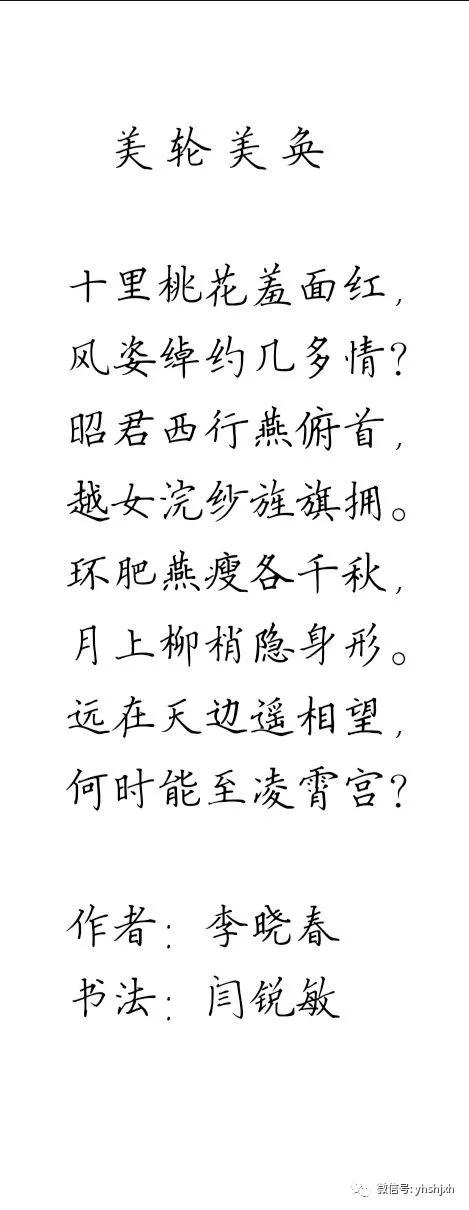 美轮美奂
十里桃花羞面红,
风姿绰约几多情?
昭君西行燕俯首,
越女浣纱旌旗拥。
环肥燕瘦各千秋,
月上柳梢隐身形。
远在天边遥相望,
何时能至凌霄宫?
作者: 李晓春
书法: 闫锐敏
微信号: yhshjxh